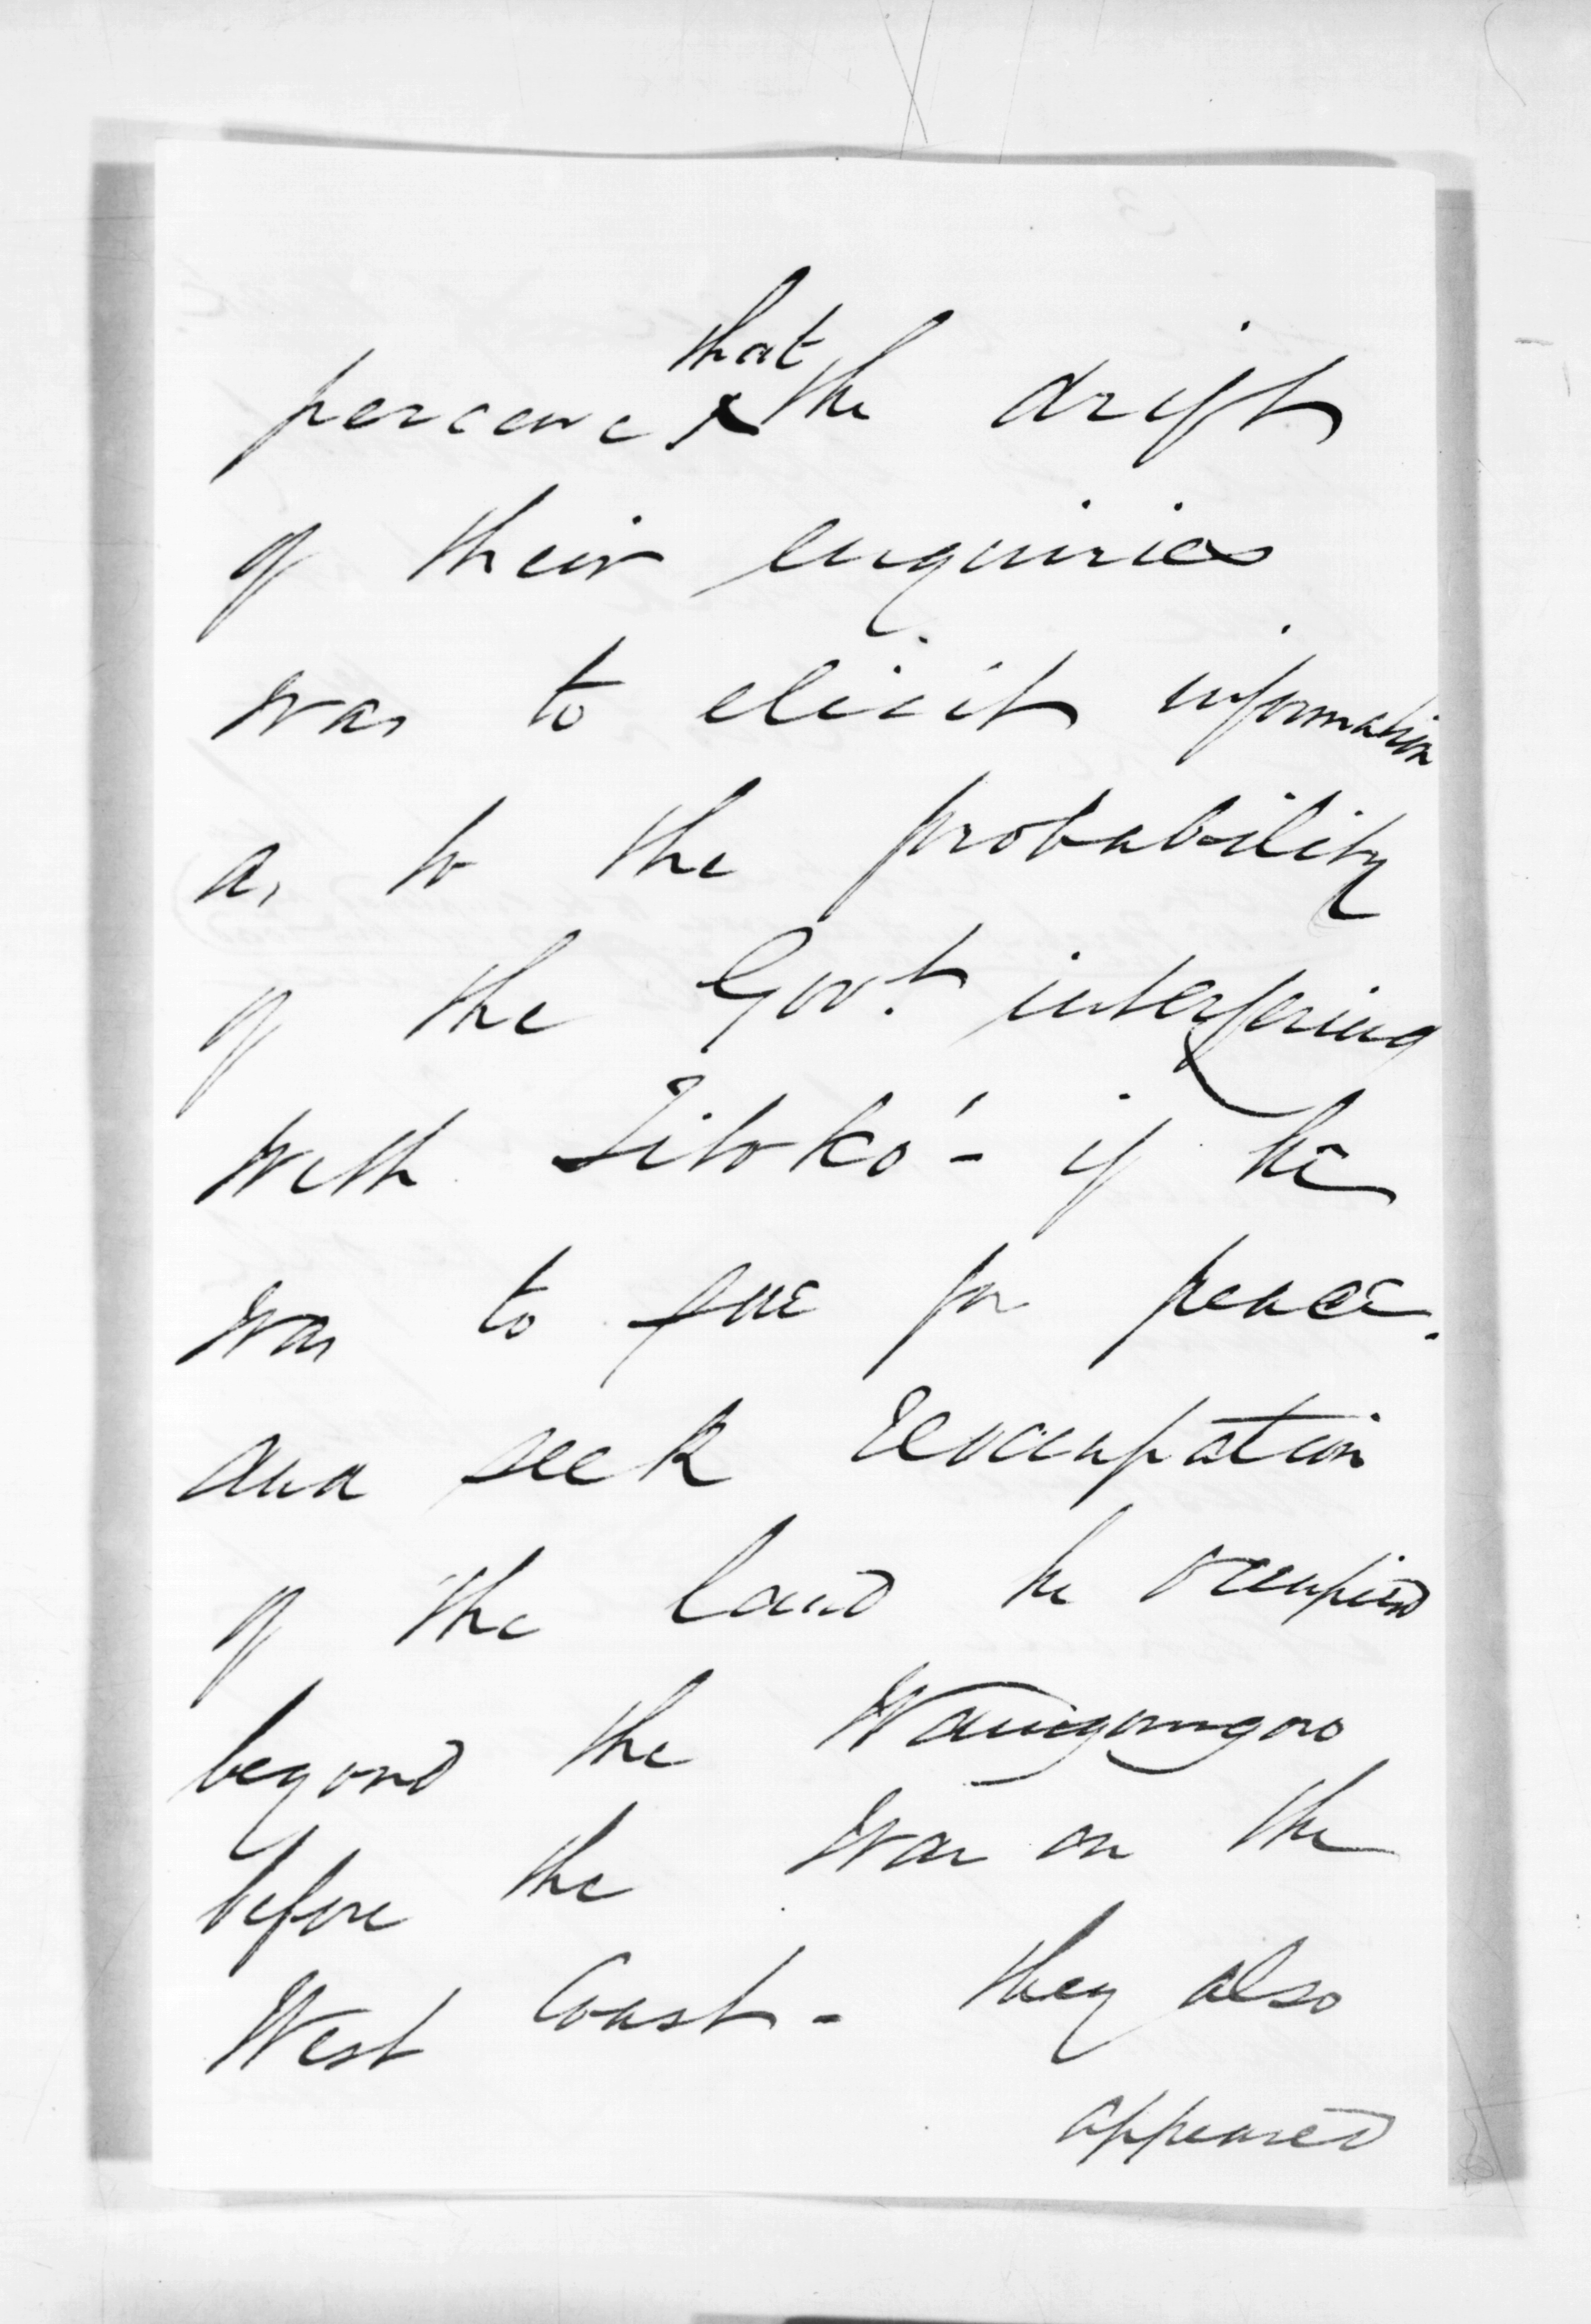 that
perceive the drift
of their enquiries
was to elicit information
as to the probability
of the Govt. interfering
with Titokó - if he
was to sue for peace.
and seek reoccupation
of the land he occupied
beyond the Waingongoro
before the War on the
West Coast - they also
appeared